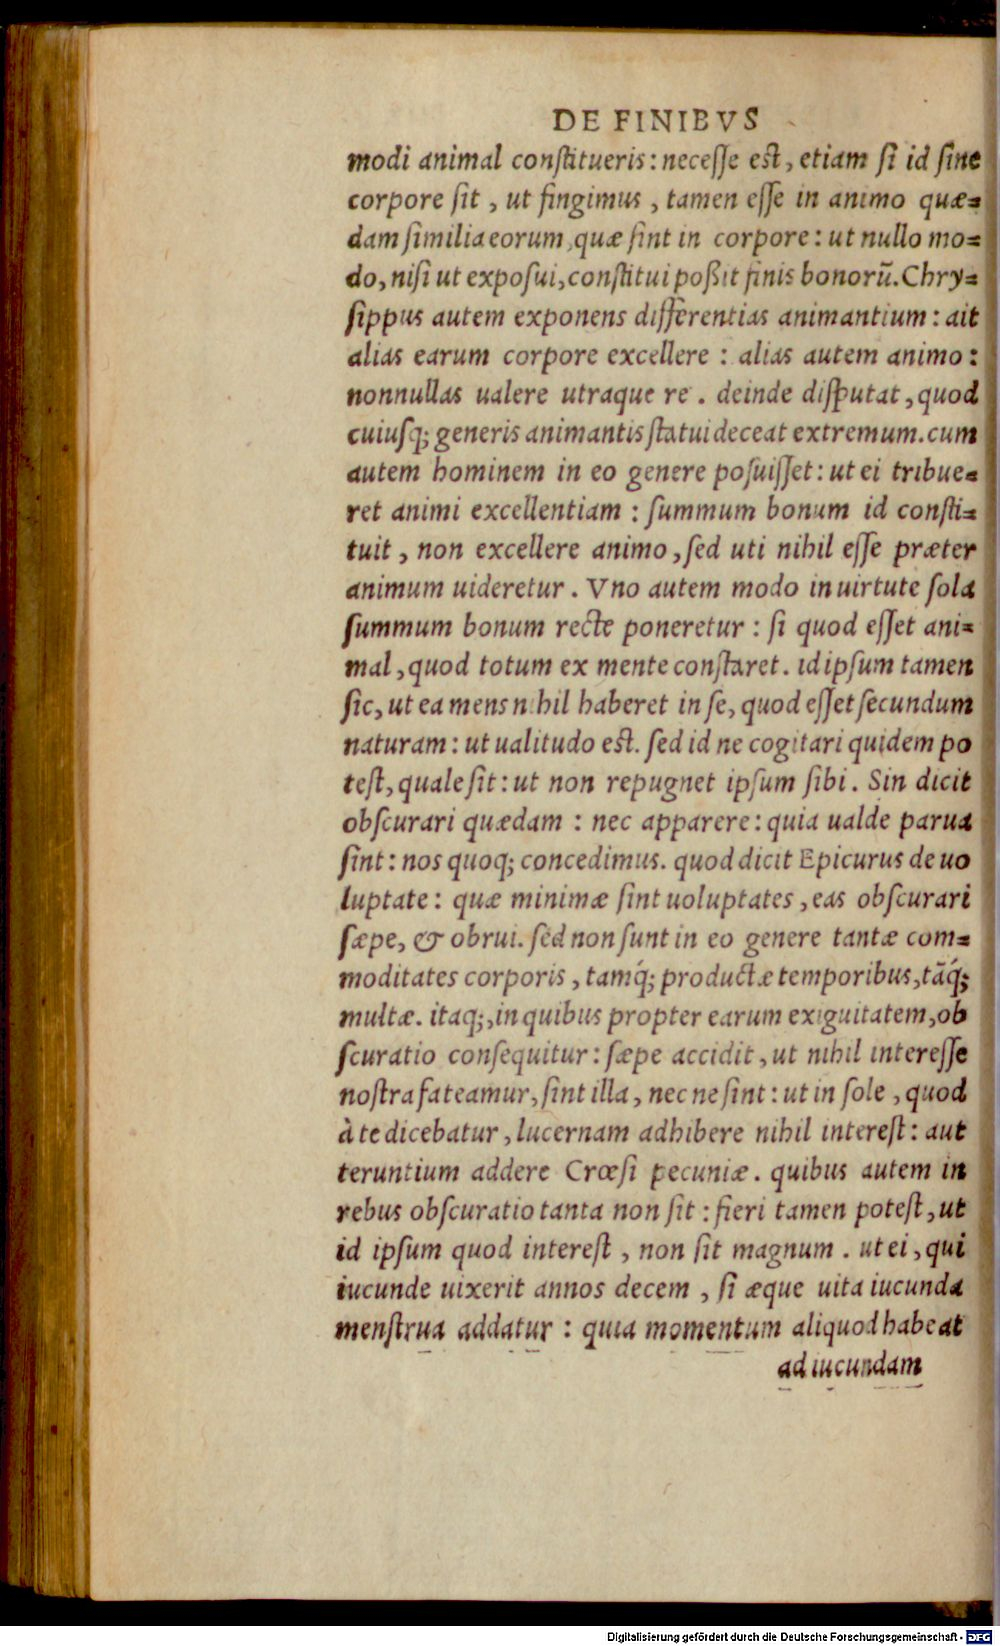 DE FINIBVS
modi animal conſtitueris: neceſſe eſt, etiam ſi id ſine
corpore ſit, ut fingimus, tamen eſſe in animo quæ=
dam ſimilia eorum, quæ ſint in corpore: ut nullo mo=
do, niſi ut expoſui, conſtitui poßit finis bonorũ. Chry=
ſippus autem exponens differentias animantium: ait
alias earum corpore excellere: alias autem animo:
nonnullas ualere utraque re. deinde diſputat, quod
cuiuſq; generis animantis ſtatui deceat extremum. cum
autem hominem in eo genere poſuiſſet: ut ei tribue=
ret animi excellentiam: ſummum bonum id conſti=
tuit, non excellere animo, ſed uti nihil eſſe præter
animum uideretur. Vno autem modo in uirtute ſola
ſummum bonum recte poneretur: ſi quod eſſet ani=
mal, quod totum ex mente conſtaret. id ipſum tamen
ſic, ut ea mens nihil haberet in ſe, quod eſſet ſecundum
naturam: ut ualitudo eſt. ſed id ne cogitari quidem po
teſt, quale ſit: ut non repugnet ipſum ſibi. Sin dicit
obſcurari quædam: nec apparere: quia ualde parua
ſint: nos quoq; concedimus. quod dicit Epicurus de uo
luptate: quæ minimæ ſint uoluptates, eas obſcurari
ſæpe, & obrui. ſed non ſunt in eo genere tantæ com=
moditates corporis, tamq́; productæ temporibus, tãq́;
multæ. itaq;, in quibus propter earum exiguitatem, ob
ſcuratio conſequitur: ſæpe accidit, ut nihil intereſſe
noſtra fateamur, ſint illa, nec ne ſint: ut in ſole, quod
à te dicebatur, lucernam adhibere nihil intereſt: aut
teruntium addere Crœſi pecuniæ. quibus autem in
rebus obſcuratio tanta non ſit: fieri tamen poteſt, ut
id ipſum quod intereſt, non ſit magnum. ut ei, qui
iucunde uixerit annos decem, ſi æque uita iucunda
menſtrua addatur: quia momentum aliquod habeat
ad iucundam
Digitalisierung gefördert durch die Deutsche Forschungsgemeinschaft - DFG